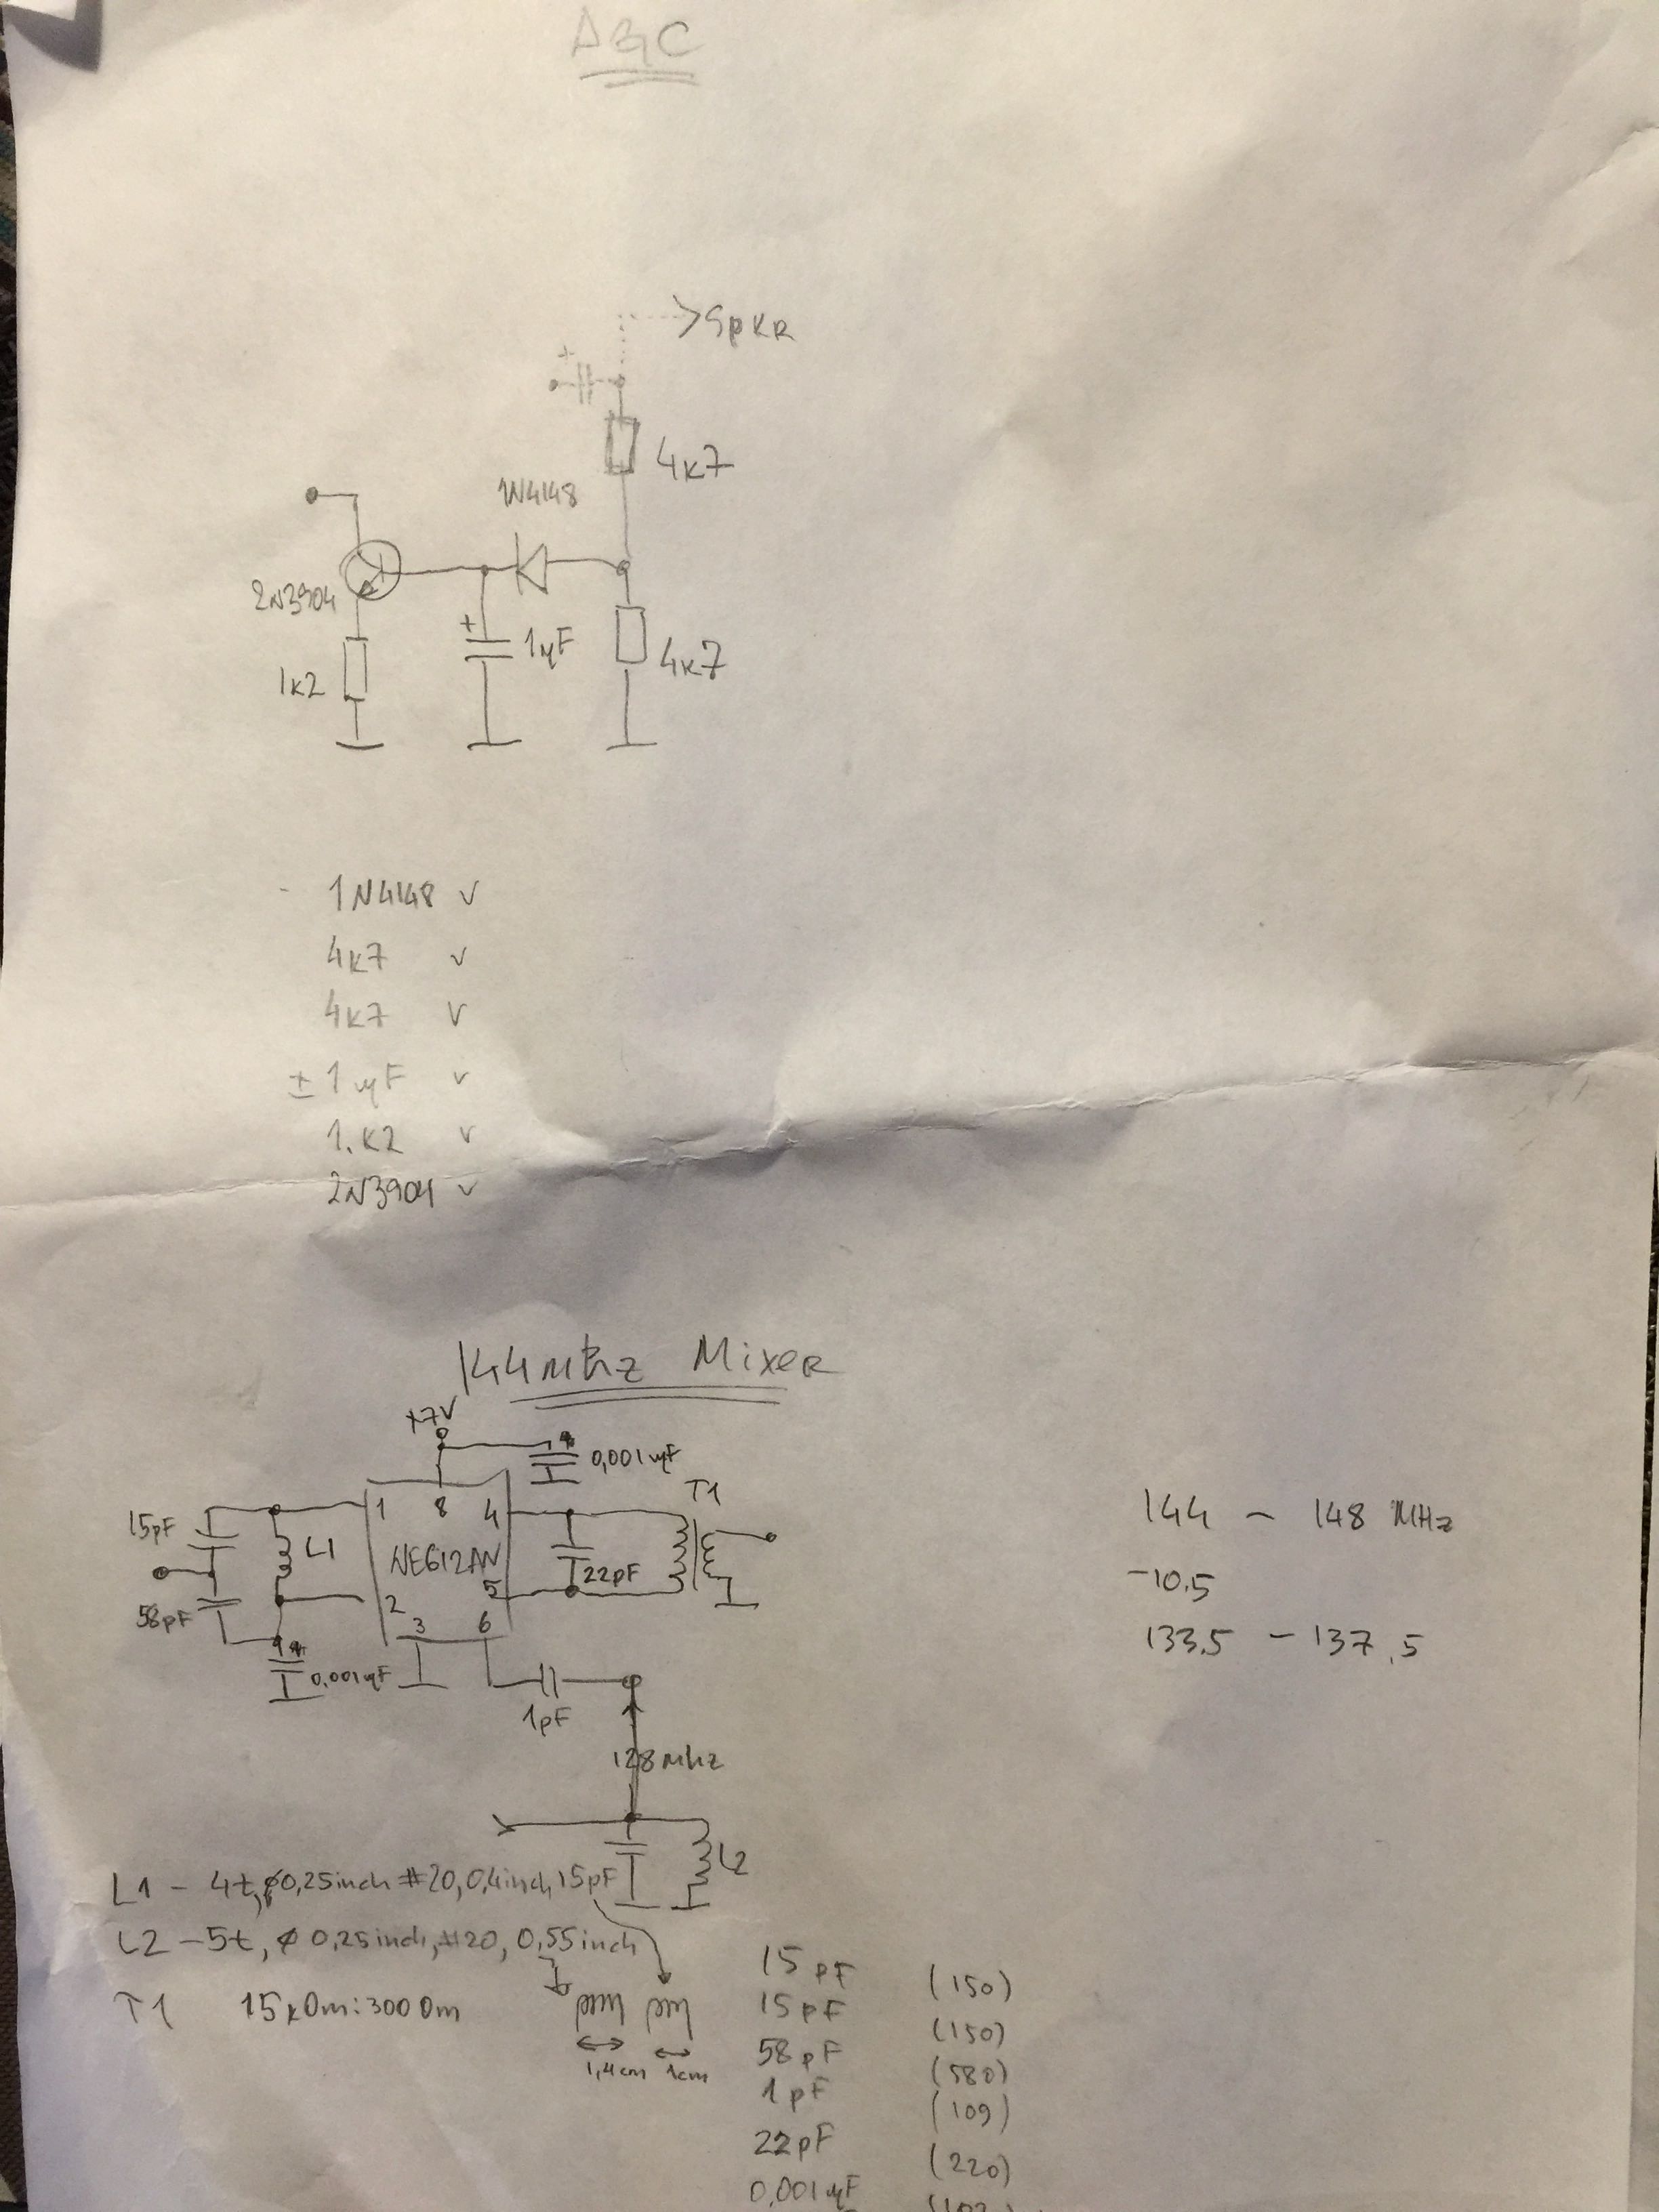 AGC
SPKR
+
4k7
1N4148
2N3904
+
1µF
1k2
4k7
- 1N4148 v
4k7 v
4k7 v
± 1µF v
1.k2 v
2N3904 v
144Mhz Mixer
+7V
+ 0,001µF
T1
1 8 4
15pF
L1
NE612AN
22pF
5
58pF
2 3 6
+ 0,001µF
1pF
144 - 148 MHz
-10.5
133.5 - 137.5
128Mhz
L2
L1 - 4t, ø0,25inch #20, 0,4inch, 15pF
L2 - 5t, ø 0,25inch, #20, 0,55inch
T1 15kOm:300Om
1,4cm 1cm
15pF (150)
15pF (150)
58pF (580)
1pF (109)
22pF (220)
0,001µF (102)